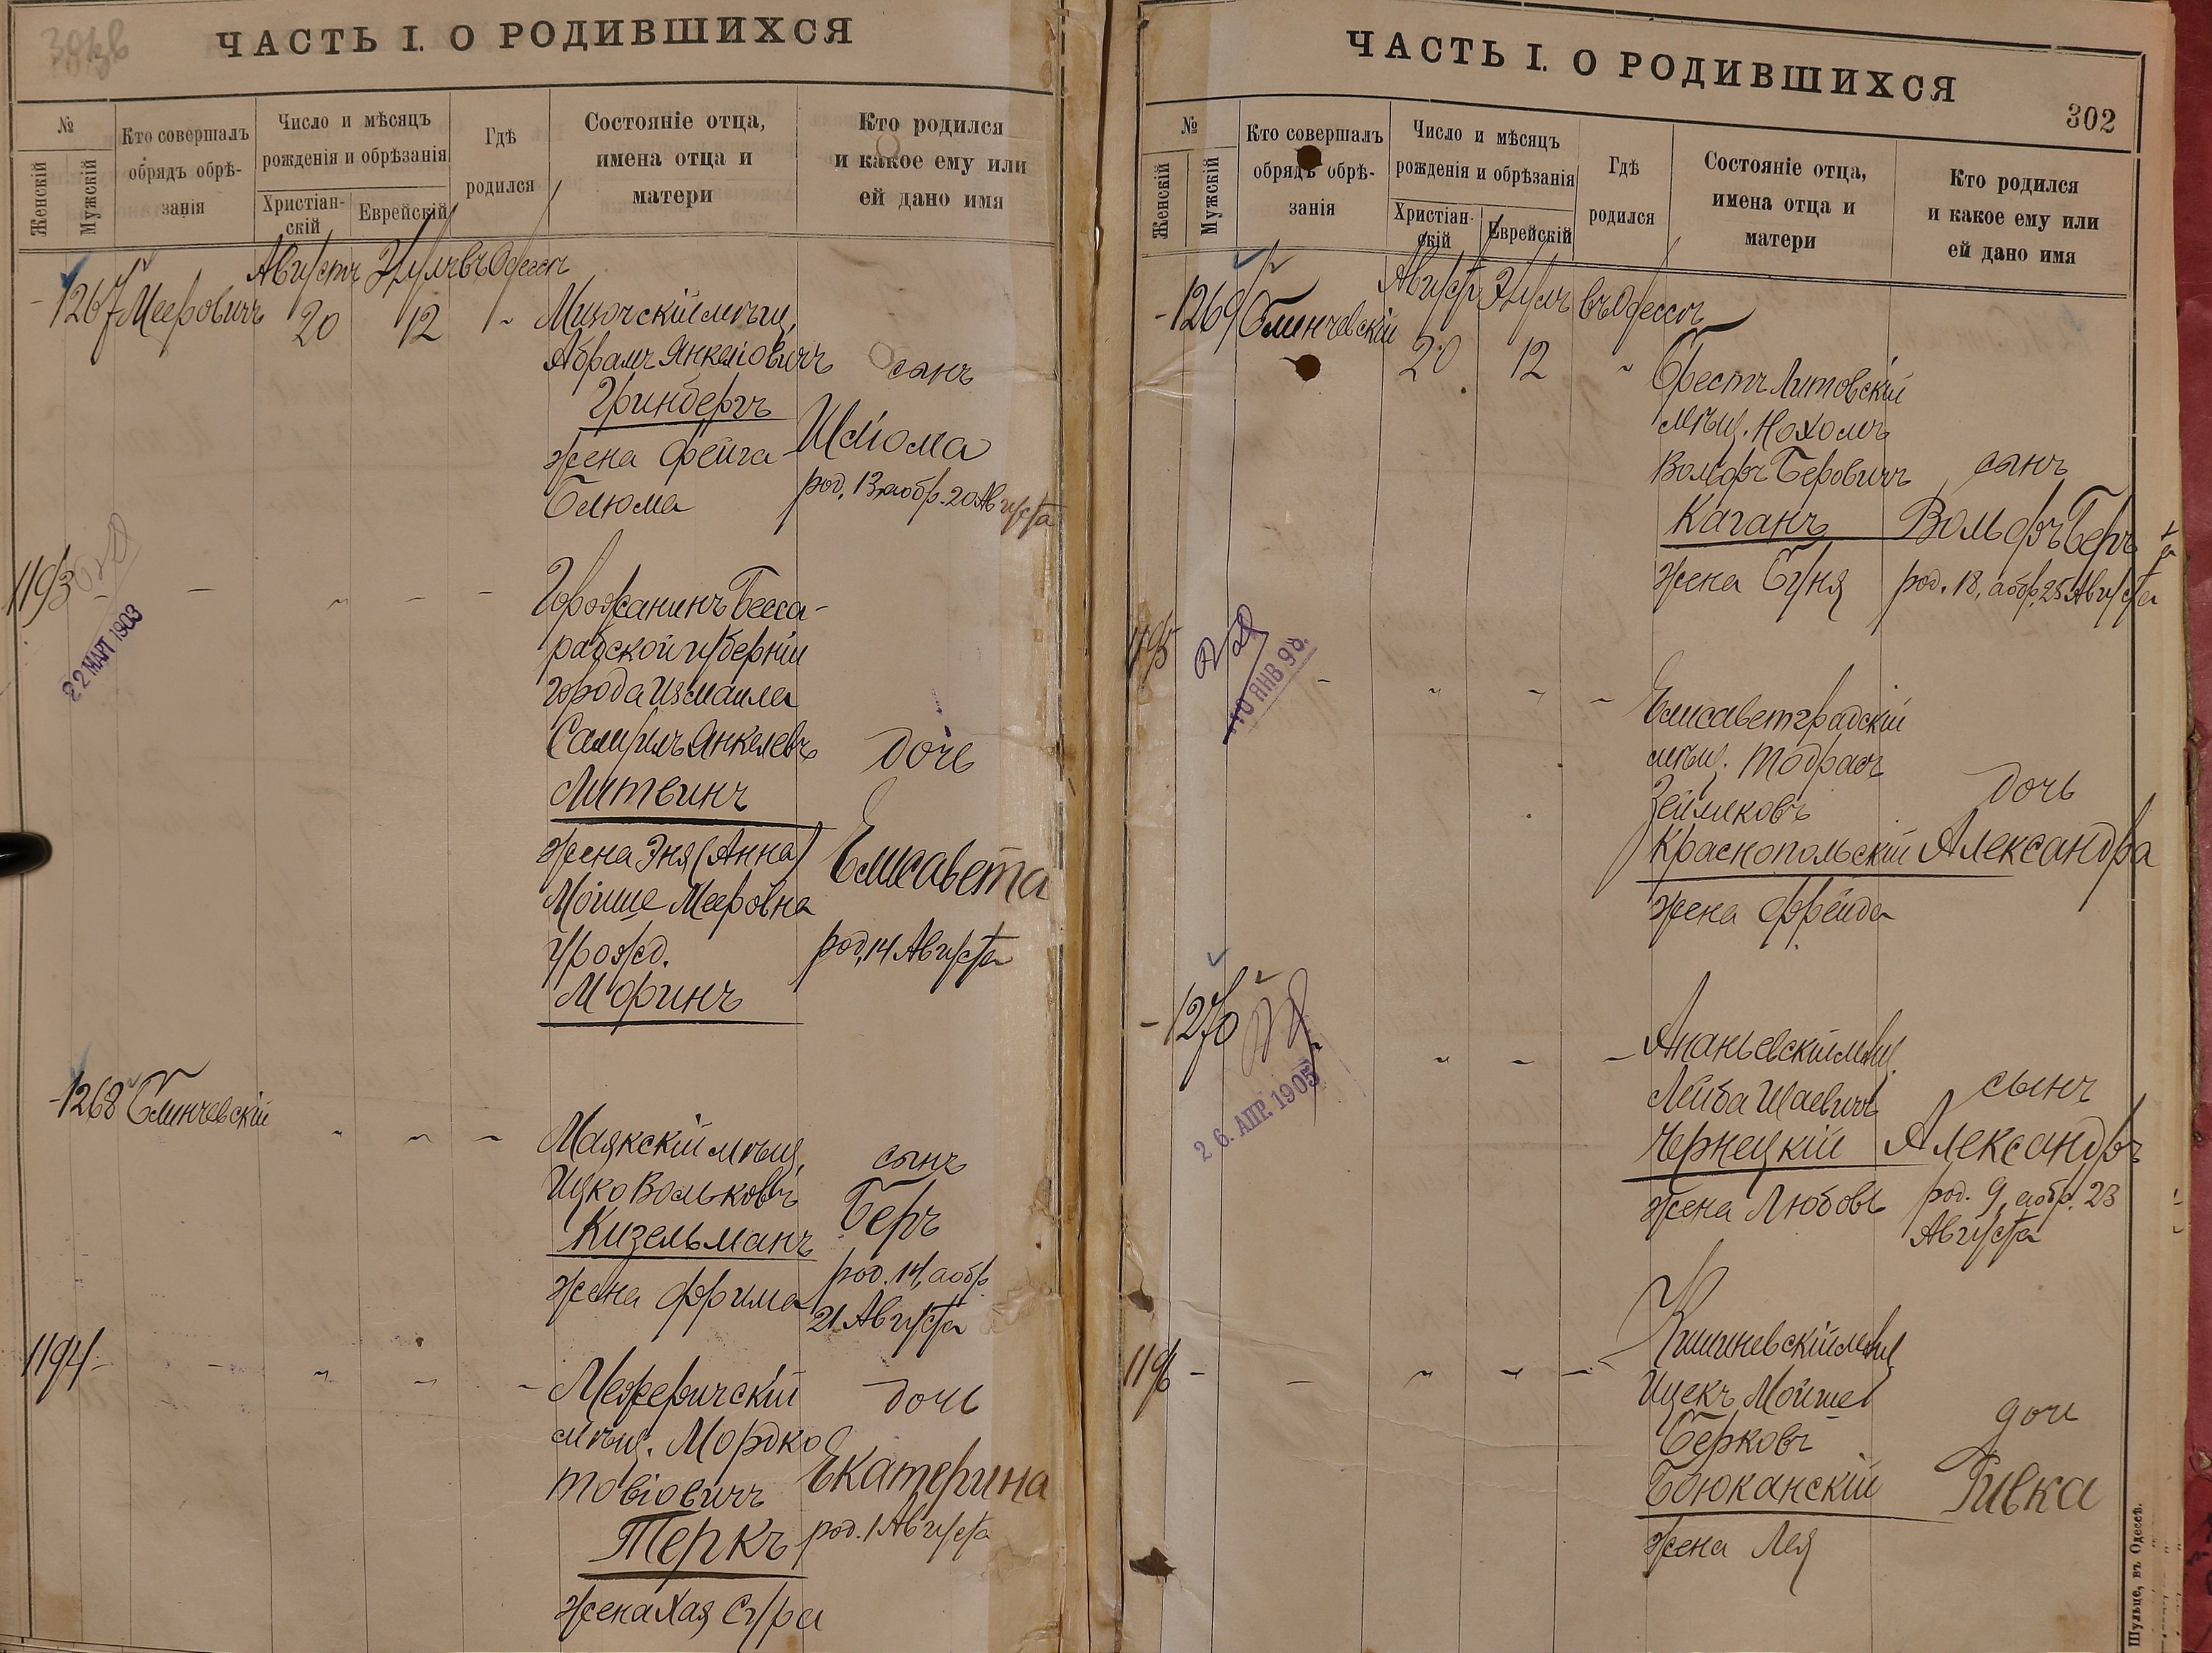 ЧАСТЬ I. О РОДИВШИХСЯ
№
Женскій
Мужскій
Кто совершалъ
обрядъ обрѣ-
занія
Число и мѣсяцъ
рожденія и обрѣзанія
Христіан-
скій
Еврейскій
Гдѣ
родился
Состояніе отца,
имена отца и
матери
Кто родился
и какое ему или
ей дано имя
1267 Мееровичъ
Августъ
20
Элулъ
12
въ Одессѣ
Абрамъ Янкелевичъ
Гринбергъ
жена Фейга
Блюма
сынъ
Шлiома
род. 13, а обр. 20 Августа
1193
22 МАРТ 1903
Горожанинъ Бесса-
рабской губерніи
города Измаила
Янкелевъ
Литвинъ
жена Эня (Анна)
Мойше Мееровна
урожд.
Моринъ
дочь
Елисавета
род. 14 Августа
1268 Блинчевскій
Маякскій мѣщ.
Ицко Вольковъ
Кизельманъ
жена Фрима
сынъ
Беръ
род. 14, а обр.
21 Августа
1194
Межеричскій
мѣщ. Мордко
Товіовичъ
Теркъ
жена Хая Сура
дочь
Екатерина
род. 1 Августа
ЧАСТЬ I. О РОДИВШИХСЯ
302
№
Женскій
Мужскій
Кто совершалъ
обрядъ обрѣ-
занія
Число и мѣсяцъ
рожденія и обрѣзанія
Христіан-
скій
Еврейскій
Гдѣ
родился
Состояніе отца,
имена отца и
матери
Кто родился
и какое ему или
ей дано имя
1269 Блинчевскій
Августъ
20
Элулъ
12
въ Одессѣ
Брестъ Литовскій
мѣщ. Нохомъ
Вольфъ Беровичъ
Каганъ
жена Буня
сынъ
Вольфъ Беръ
род. 18, а обр. 25 Августа
1195
10 ЯНВ 98.
Елисаветградскій
мѣщ. Тодрасъ
Зейликовъ
Краснопольскій
жена Фрейда
дочь
Александра
1270
26. АПР. 1905
Ананьевскій мѣщ.
Лейба Шаевичъ
Чернецкій
жена Любовь
сынъ
Александръ
род. 9, а обр. 23
Августа
1196
Кишиневскій мѣщ.
Ицекъ Мойше
Берковъ
Боюканскій
жена Лея
дочь
Ривка
Шульце, въ Одессѣ.